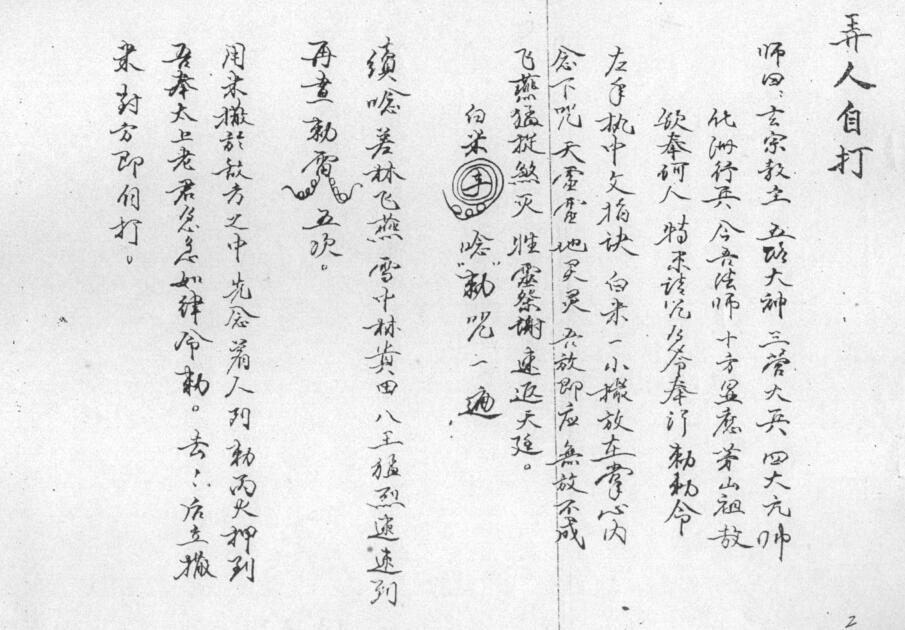 弄人自打
师曰：玄宗教主 五路大神 三营大兵 四大元帅
化洲行兵 今吾法师 十方显应 茅山祖敖
欽奉 人 特來請 令奉行 勅勅令
左手执中文指诀 白米一小撮放在掌心内
念下咒 天灵灵 地灵灵 吾放即应 無放不成
飞燕猛捉煞灭 牲灵祭谢速返天廷。
白米 唸“勅”咒一遍
續唸 差林飞燕 雪中林黄田 八王猛烈速速到
再畫勅雷 五次。
用米撒於敌方之中 先念着人到勅丙火押到
吾奉太上老君急急如律令勅。去：后立撒
米 對方即自打。
2